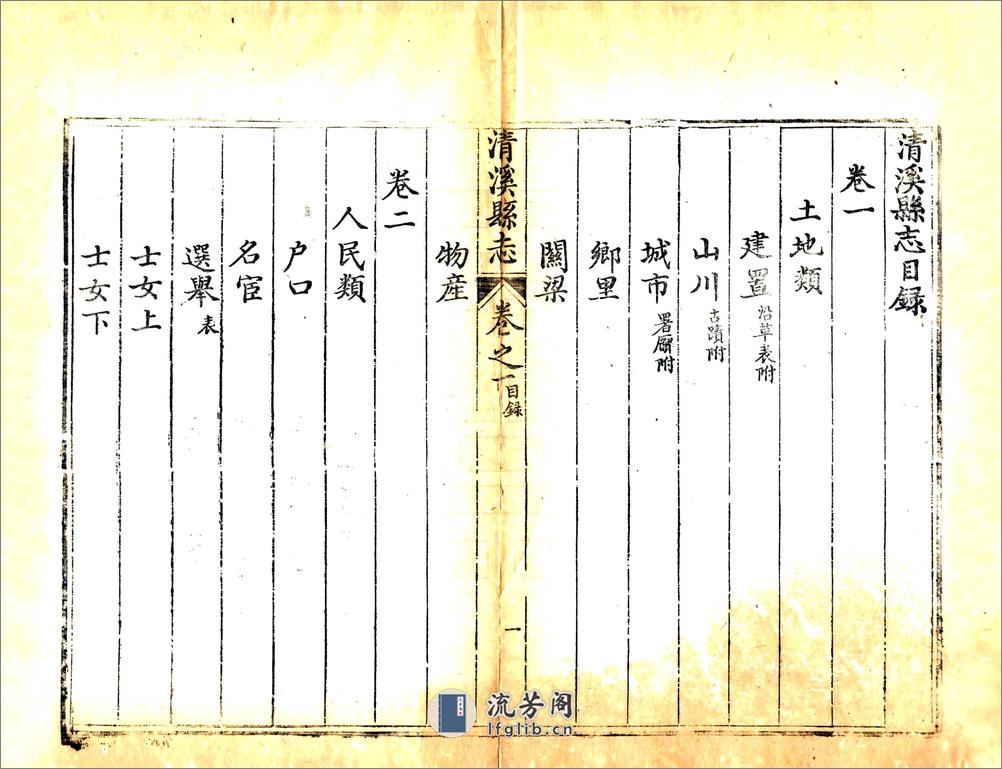 清溪縣志目録
卷一
土地類
建置 沿革表附
山川 古蹟附
城市 署廨附
鄉里
關梁
清溪縣志 卷之一 目録 一
物産
卷二
人民類
户口
名宦
選舉 表
士女上
士女下
流芳阁
lfglib.cn